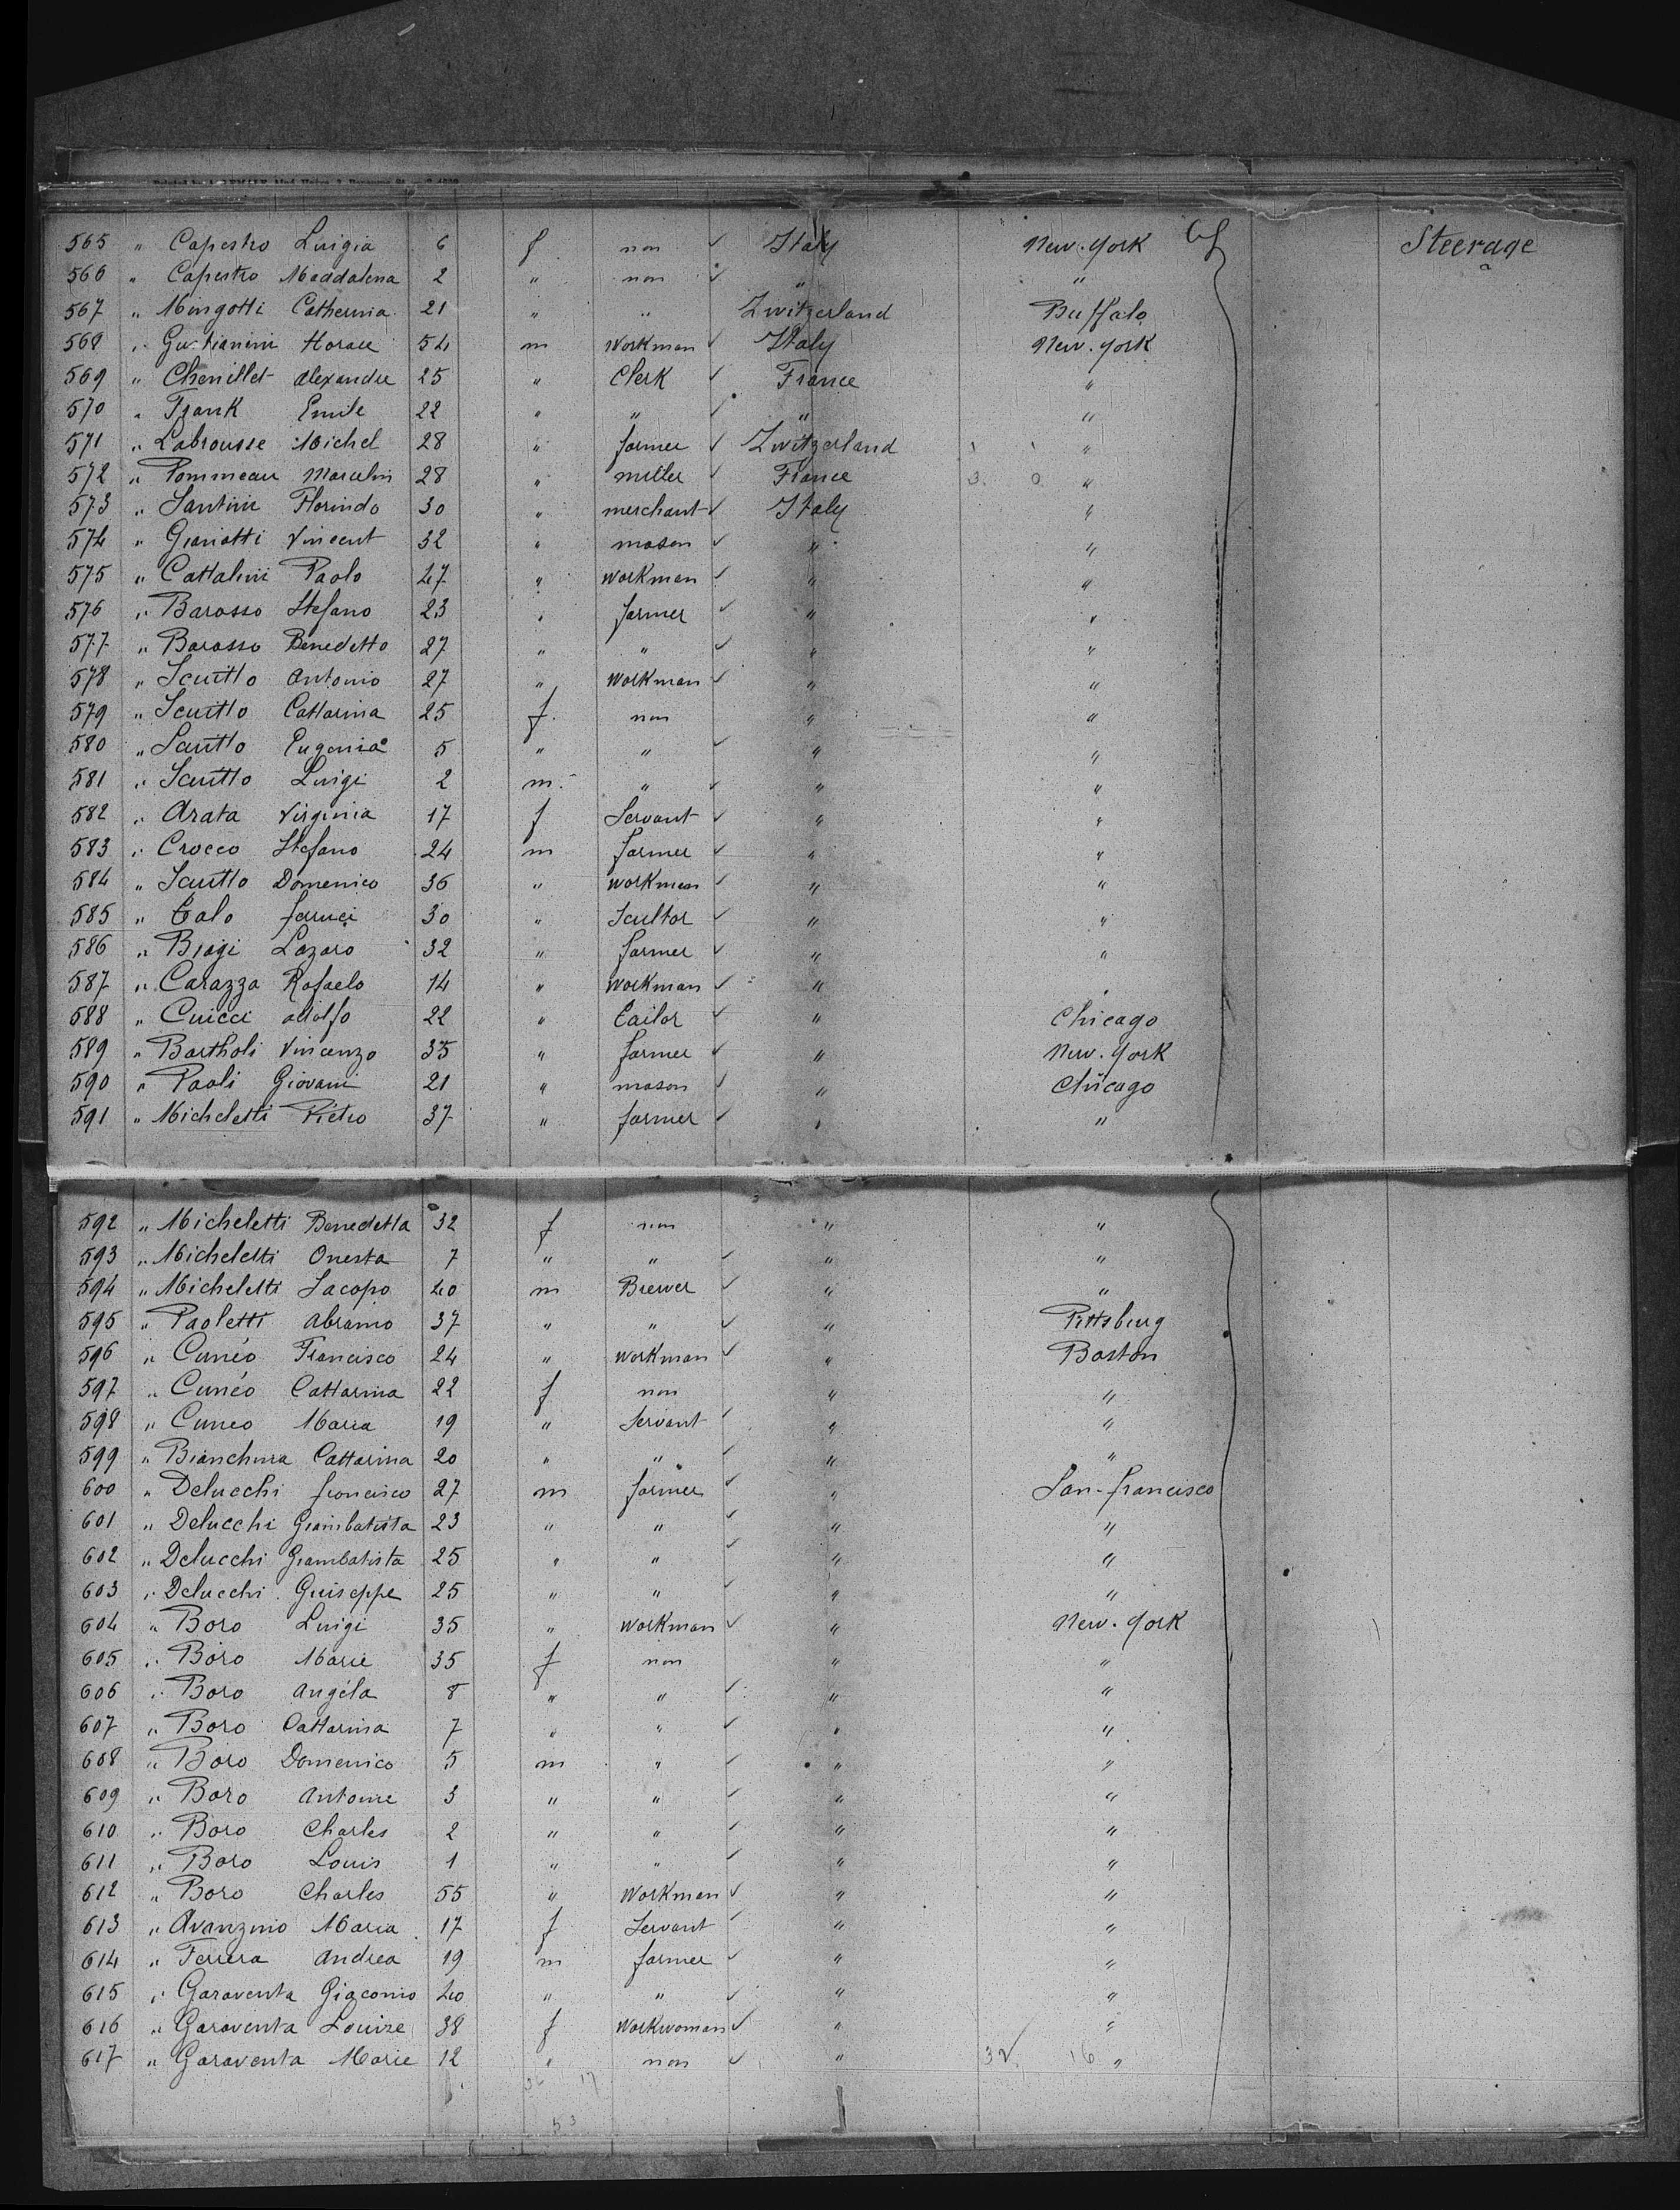 565 " Capestro Luigia 6 f non ✓ Italy New-York Steerage
566 " Capestro Maddalena 2 " non ✓ " "
567 " Mingotti Catherina 21 " " Zwitzerland Buffalo
568 " Horace 54 m Workman ✓ Italy New-York
569 " Chenillet Alexandre 25 " Clerk ✓ France "
570 " Frank Emile 22 " " ✓ " "
571 " Labrousse Michel 28 " farmer ✓ Zwitzerland "
572 " Pommeau Marcelin 28 " miller ✓ France 3. 0 "
573 " Santini Florindo 30 " merchant ✓ Italy "
574 " Gianotti Vincent 32 " mason ✓ " "
575 " Cattalini Paolo 27 " Workman ✓ " "
576 " Barosso Stefano 23 " farmer ✓ " "
577 " Barosso Benedetto 27 " " ✓ " "
578 " Scuitto Antonio 27 " Workman ✓ " "
579 " Scuitto Cattarina 25 f. non " "
580 " Scuitto Eugenia 5 " " ✓ " "
581 " Scuitto Luigi 2 m. " ✓ " "
582 " Arata Virginia 17 f Servant ✓ " "
583 " Crocco Stefano 24 m farmer ✓ " "
584 " Scuitto Domenico 36 " Workman ✓ " "
585 " Talo feruci 30 " Scultor ✓ " "
586 " Biagi Lazaro 32 " farmer ✓ " "
587 " Carazza Rafaelo 14 " Workman ✓ " "
588 " Cuicci adolfo 22 " Tailor ✓ " Chicago
589 " Bartholi Vincenzo 35 " farmer ✓ " New-York
590 " Paoli Giovani 21 " mason ✓ " Chicago
591 " Micheletti Pietro 37 " farmer ✓ " "
592 " Micheletti Benedetta 32 f non " "
593 " Micheletti Onesta 7 " " ✓ " "
594 " Micheletti Jacopo 40 m Brewer ✓ " "
595 " Paoletti Abramo 37 " " ✓ " Pittsburg
596 " Cunéo Francisco 24 " Workman ✓ " Boston
597 " Cunéo Cattarina 22 f non " "
598 " Cuneo Maria 19 " Servant ✓ " "
599 " Bianchina Cattarina 20 " " ✓ " "
600 " Delucchi francisco 27 m farmer ✓ " San-francisco
601 " Delucchi Giambatista 23 " " ✓ " "
602 " Delucchi Giambatista 25 " " ✓ " "
603 " Delucchi Guiseppe 25 " " ✓ " "
604 " Boro Luigi 35 " Workman ✓ " New-York
605 " Boro Marie 35 f non " "
606 " Boro Angéla 8 " " ✓ " "
607 " Boro Cattarina 7 " " ✓ " "
608 " Boro Domenico 5 m " ✓ " "
609 " Boro Antoine 3 " " ✓ " "
610 " Boro Charles 2 " " ✓ " "
611 " Boro Louis 1 " " ✓ " "
612 " Boro Charles 55 " Workman ✓ " "
613 " Avanzino Maria 17 f Servant ✓ " "
614 " Ferrera Andrea 19 m farmer ✓ " "
615 " Garaventa Giacomo 40 " " ✓ " "
616 " Garaventa Louise 38 f Workwoman ✓ " "
617 " Garaventa Marie 12 " non ✓ " 16 "
17
53